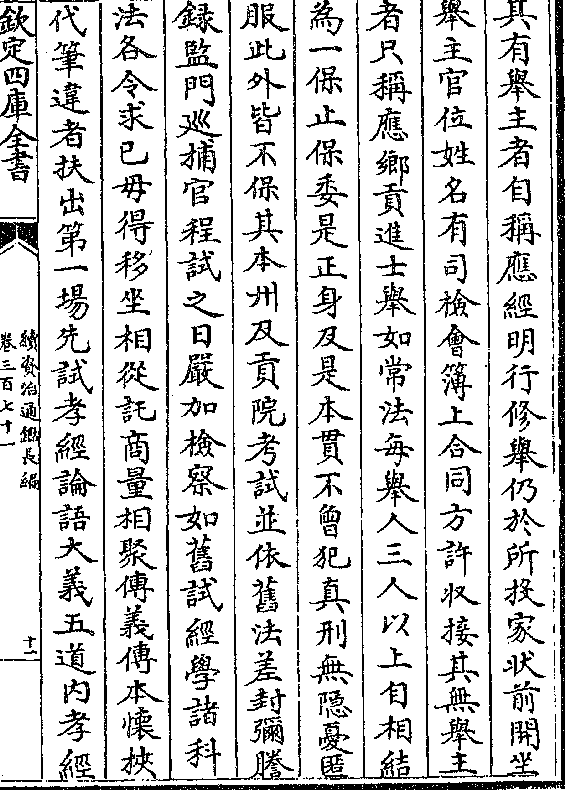 其有舉主者自稱應經明行修舉仍於所投家狀前開坐
舉主官位姓名有司檢會簿上合同方許收接其無舉主
者只稱應鄉貢進士舉如常法每舉人三人以上自相結
為一保止保委是正身及是本貫不曾犯真刑無隐憂匿
服此外皆不保其本州及貢院考試並依舊法差封彌謄
録監門巡捕官程試之日嚴加檢察如舊試經學諸科
法各令求已毋得移坐相從託商量相聚傳義傳本懷挾
代筆違者扶出第一場先試孝經論語大義五道内孝經
欽定四庫全書
續資治通鑑長編
卷三百七十一
十一